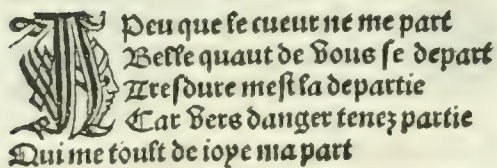 A Peu que le cueur ne me part
Belle quant de vous se depart
Tresdure mest la departie
Car vers danger tenez partie
Qui me toult de ioye ma part